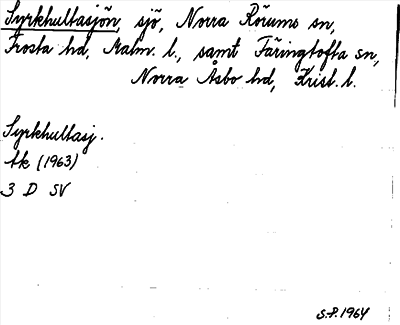 Syrkhultasjön, sjö, Norra Rörums sn,
Frosta hd, Malm. l., samt Färingtofta sn,
Norra Åsbo hd, Krist. l.
Syrkhultasj.
tk (1963)
3 D SV
S.P. 1964